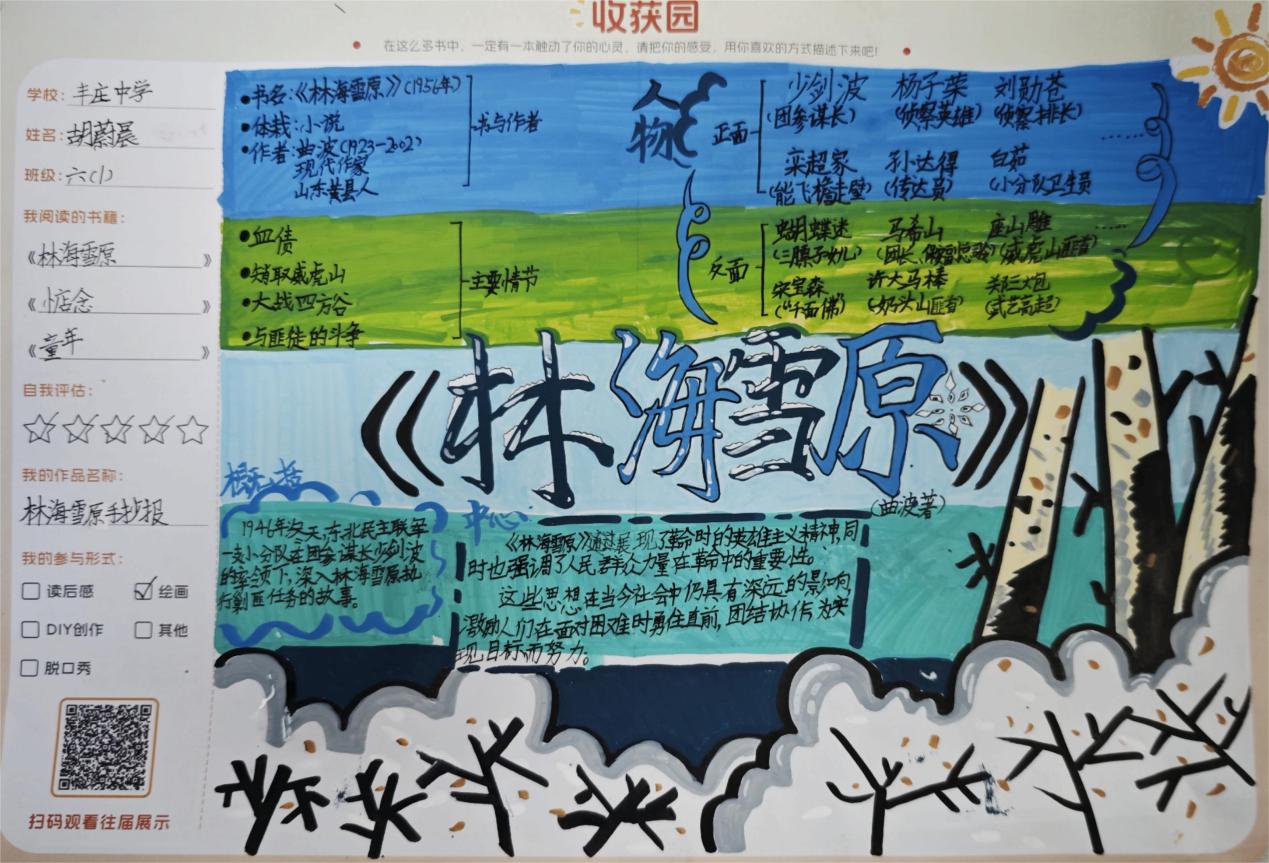 收获园
在这么多书中，一定有一本触动了你的心灵，请把你的感受，用你喜欢的方式描述下来吧！
学校：丰庄中学
姓名：胡蔚晨
班级：六（1）
我阅读的书籍：
《林海雪原》
《惦念》
《童年》
自我评估：
我的作品名称：
林海雪原手抄报
我的参与形式：
读后感 绘画
DIY创作 其他
脱口秀
扫码观看往届展示
书名：《林海雪原》（1956年）
体裁：小说
作者：曲波（1923-2002）
现代作家
山东黄县人
书与作者
血债
智取威虎山
大战四方谷
与匪徒的斗争
主要情节
人物
正面
少剑波 杨子荣 刘勋苍
（团参谋长） （侦察英雄） （侦察排长）
栾超家 孙达得 白茹
（能飞檐走壁） （传达员） （小分队卫生员
……
反面
蝴蝶迷 马希山 座山雕 ……
（团长、 （威虎山匪首）
宋宝森 许大马棒 郑三炮
（奶头山匪首） （武艺高超）
《林海雪原》
（曲波著）
概括
1946年冬天，东北民主联军
一支小分队在团参谋长少剑波
的率领下，深入林海雪原执
行剿匪任务的故事。
中心：
《林海雪原》通过展现了革命时的英雄主义精神，同
时也强调了人民群众力量在革命中的重要性。
这些思想在当今社会中仍具有深远的影响，
激励人们在面对困难时勇往直前，团结协作为实
现目标而努力。